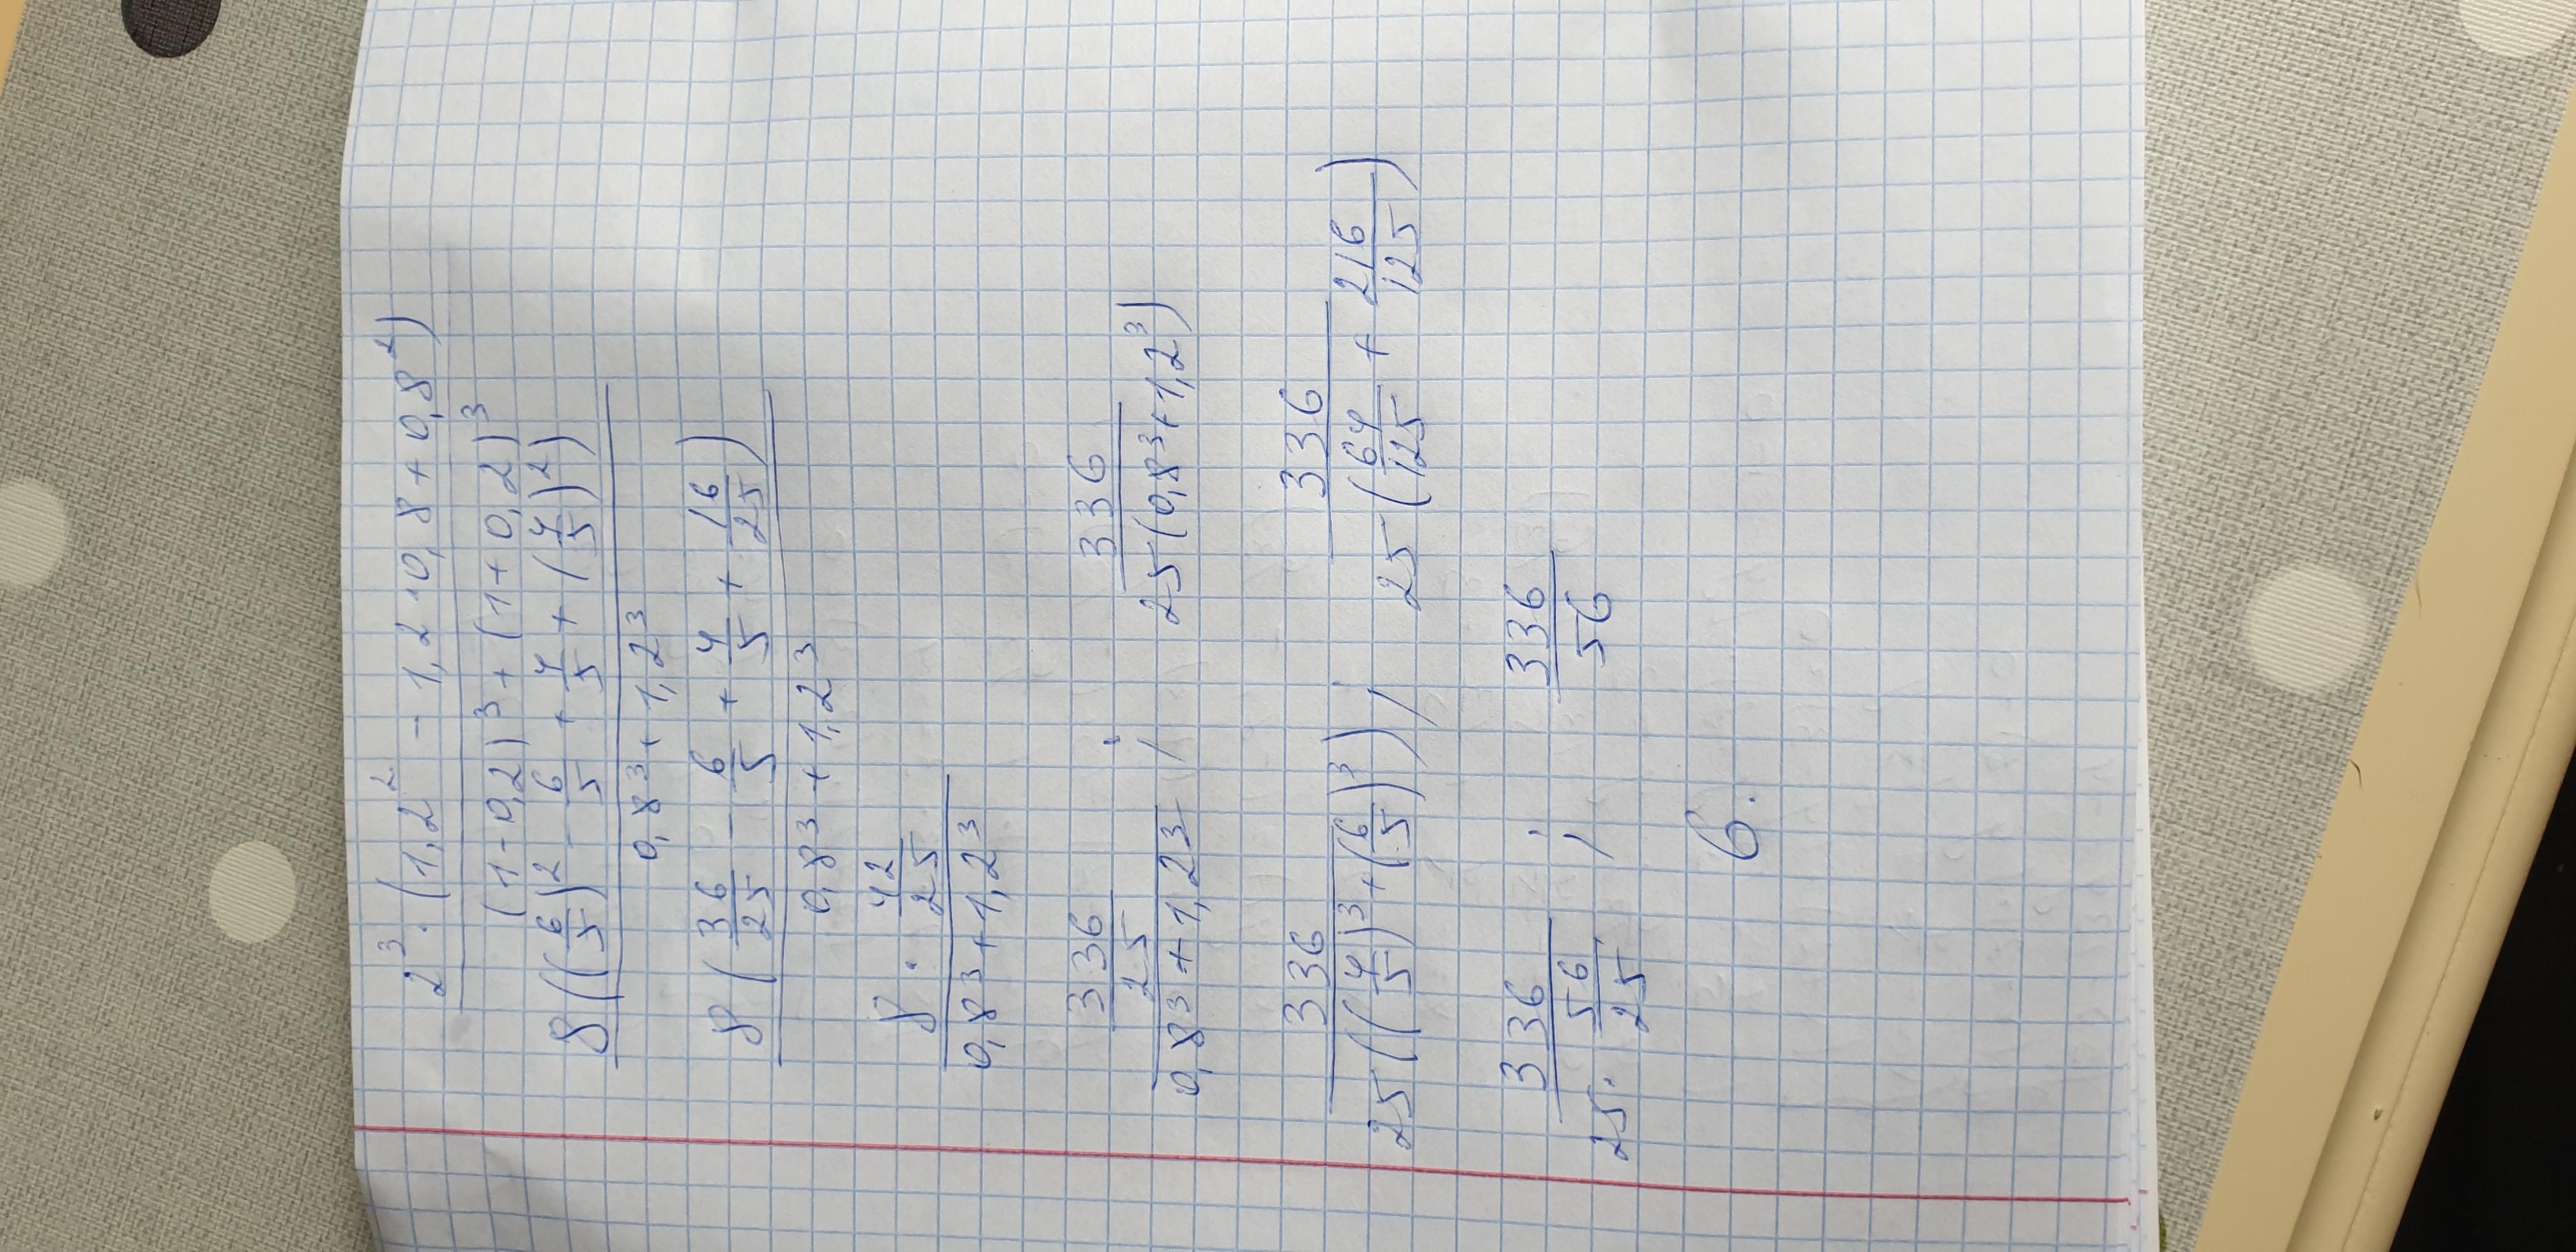 2³ · (1,2² - 1,2 · 0,8 + 0,8²)
(1 - 0,2)³ + (1 + 0,2)³
8((6/5)² - 6/5 + 4/5 + (4/5)²)
0,8³ + 1,2³
8(36/25 - 6/5 + 4/5 + 16/25)
0,8³ + 1,2³
8 · 42/25
0,8³ + 1,2³
336/25 336
0,8³ + 1,2³ ; 25(0,8³ + 1,2³)
336 336
25((4/5)³ + (6/5)³) ; 25(64/125 + 216/125)
336 336
25 · 56/25 ; 56
6.